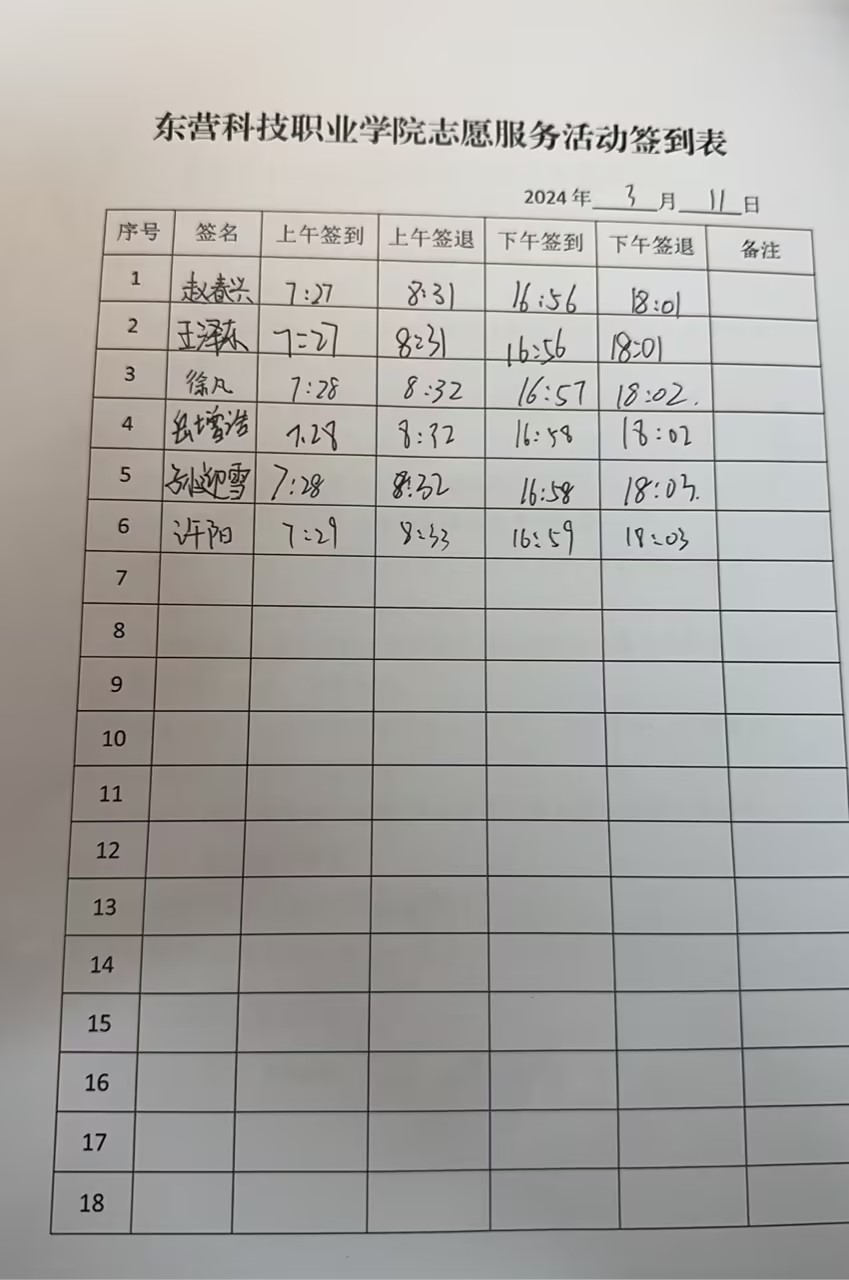 东营科技职业学院志愿服务活动签到表
2024 年 3 月 11 日
序号 签名 上午签到 上午签退 下午签到 下午签退 备注
1 赵春兴 7:27 8:31 16:56 18:01
2 王泽东 7:27 8:31 16:56 18:01
3 徐凡 7:28 8:32 16:57 18:02.
4 岳增浩 7.28 8:32 16:58 18:02
5 孙迎雪 7:28 8:32 16:58 18:03.
6 许阳 7:29 8:33 16:59 18:03
7
8
9
10
11
12
13
14
15
16
17
18